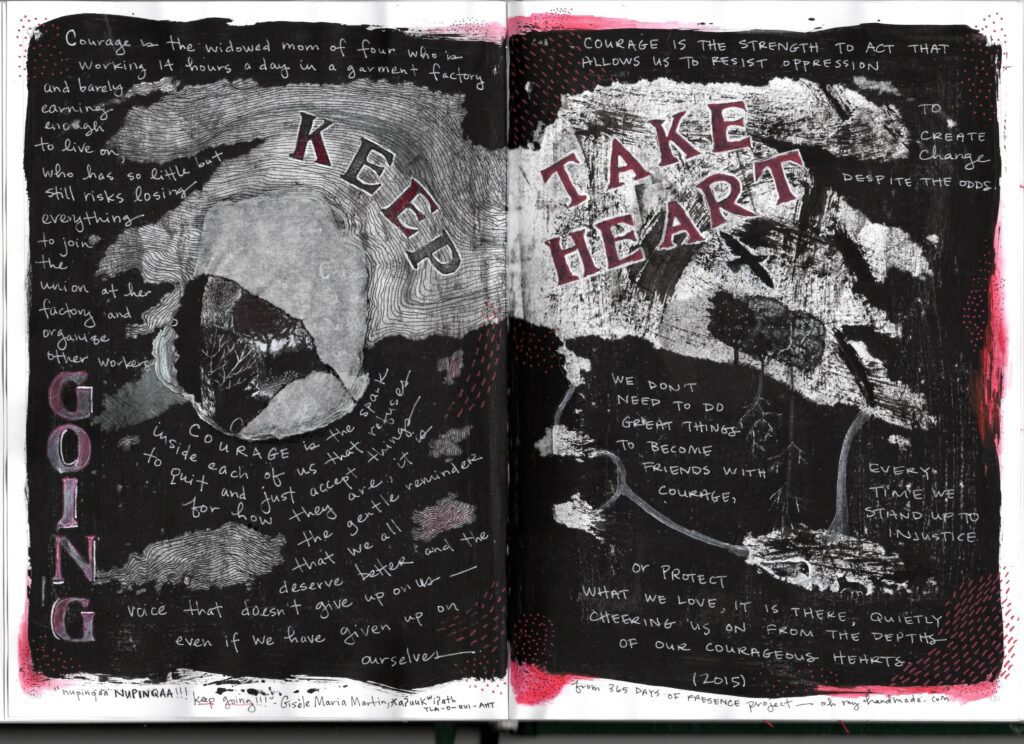 Courage is the widowed mom of four who is
working 14 hours a day in a garment factory
and barely
earning
enough
to live on,
who has so little but
still risks losing
everything
to join
the
union at her
factory and
organize
other workers
KEEP
GOING
COURAGE is the spark
inside each of us that refuses
to quit and just accept things
for how they are; it is
the gentle reminder
that we all
deserve better and the
voice that doesn't give up on us —
even if we have given up on
ourselves
"nupinqaa NUPINQAA!!!
keep going!!!" - Gisèle Maria Martin,
TLA-O-QUI-AHT
COURAGE IS THE STRENGTH TO ACT THAT
ALLOWS US TO RESIST OPPRESSION
TO
CREATE
Change
DESPITE THE ODDS.
TAKE
HEART
WE DON'T
NEED TO DO
GREAT THINGS
TO BECOME
FRIENDS WITH
COURAGE,
EVERY
TIME WE
STAND UP TO
INJUSTICE
OR PROTECT
WHAT WE LOVE, IT IS THERE, QUIETLY
CHEERING US ON FROM THE DEPTHS
OF OUR COURAGEOUS HEARTS
(2015)
from 365 DAYS OF PRESENCE project — oh my handmade.com